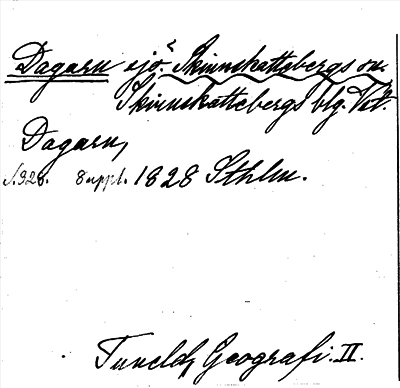 Dagarn sjö. Skinnskattebergs sn.
Skinnskattebergs blg. Vst.
Dagarn,
s. 328. 8 uppl. 1828 Sthlm.
Tuneld, Geografi. II.